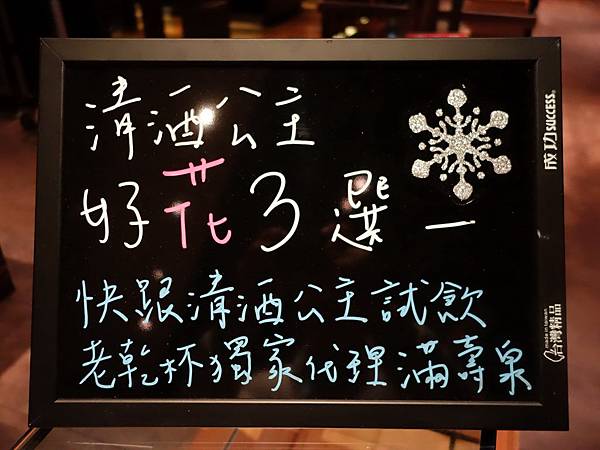 清酒公主
好花3選一
快跟清酒公主試飲
老乾杯獨家代理滿壽泉
成功 SUCCESS
made in taiwan
台灣精品